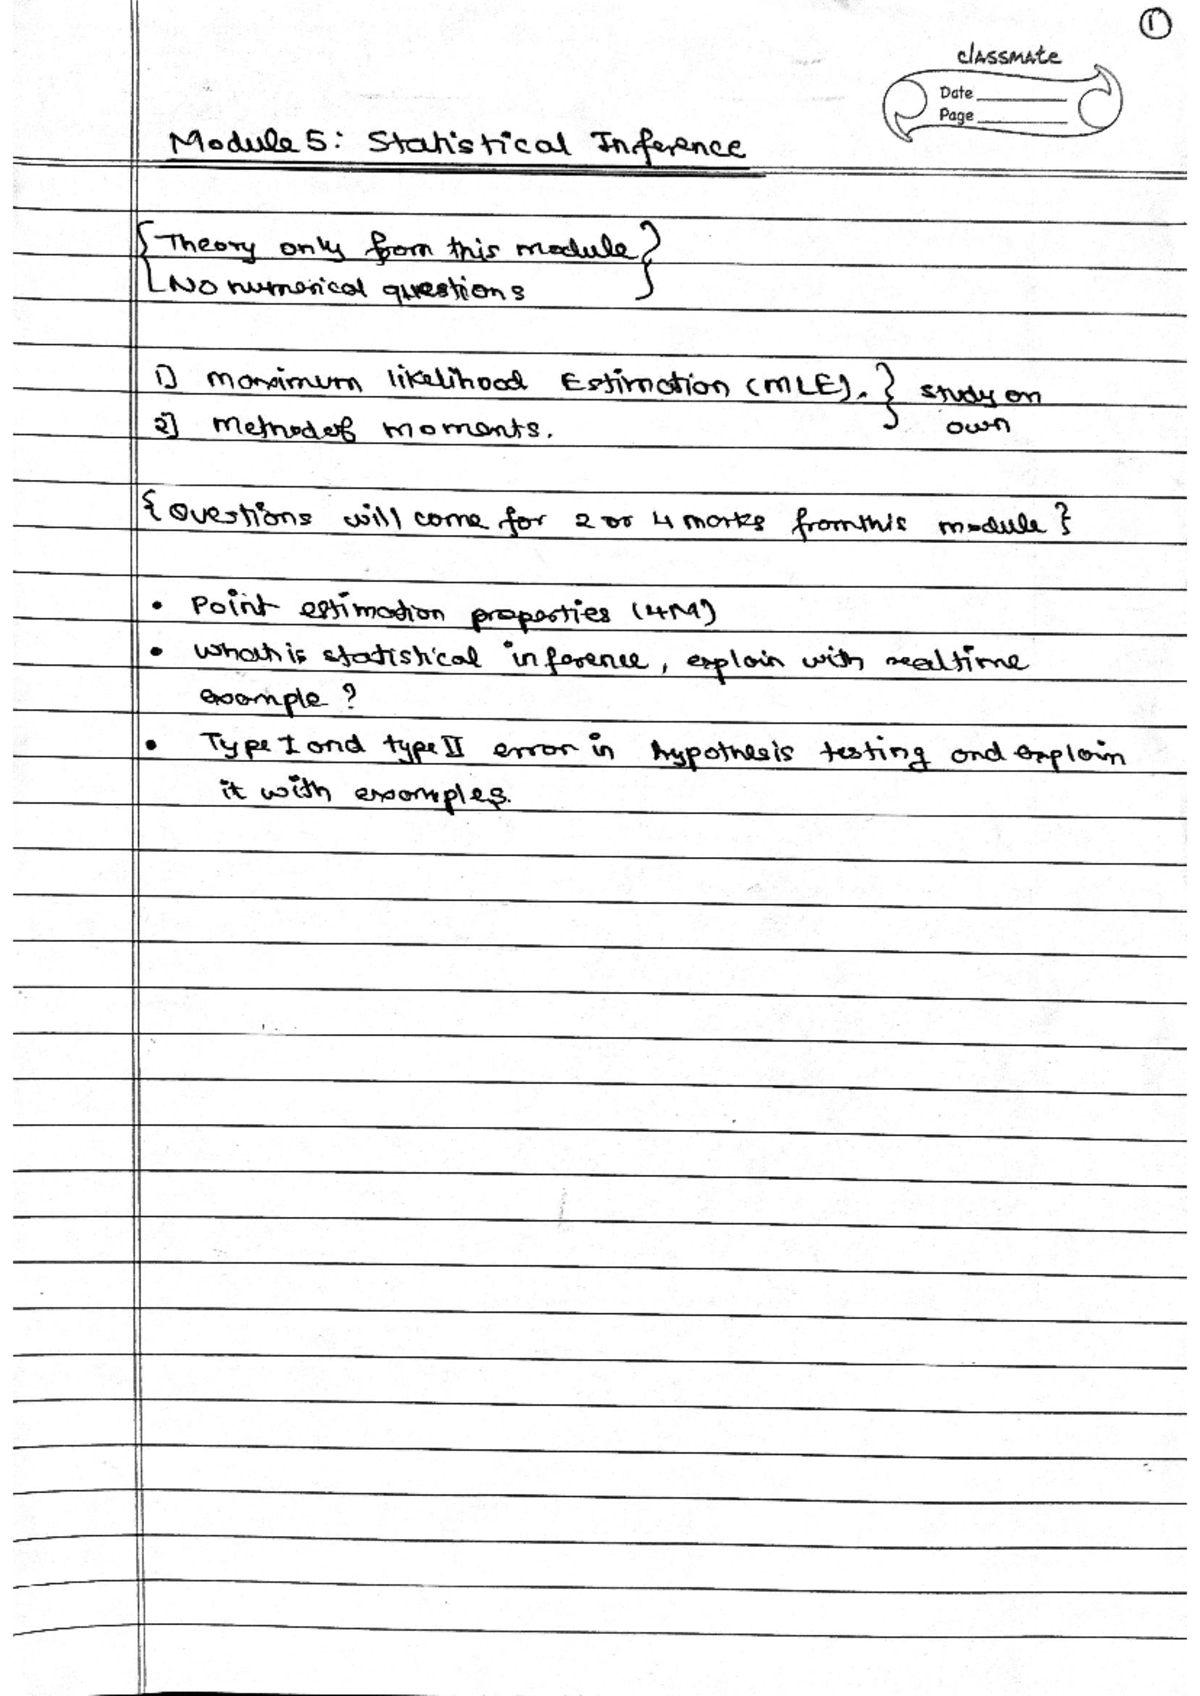 1
classmate
Date
Page
Module 5: Statistical Inference
{Theory only from this module}
No numerical questions
1) Maximum likelihood Estimation (MLE). } study on
2) Method of moments. own
{Questions will come for 2 or 4 marks from this module}
• Point estimation properties (4M)
• What is statistical inference, explain with realtime
example?
• Type I and type II error in hypothesis testing and explain
it with examples.